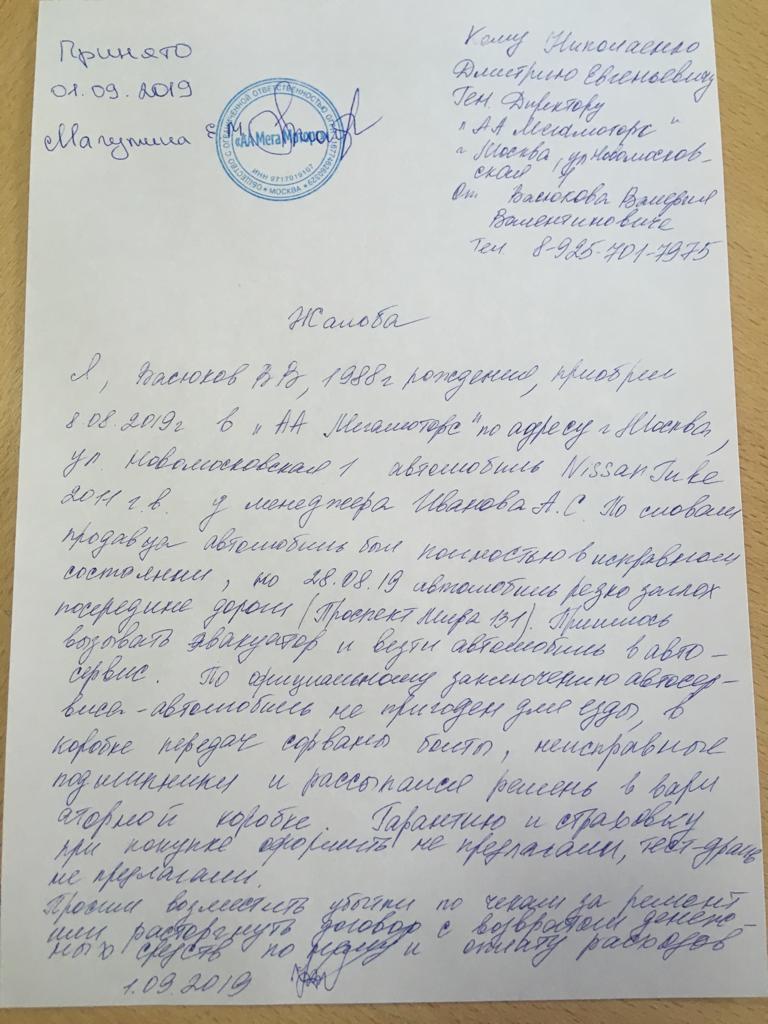 Принято
01.09.2019
Магутина Е М
ОБЩЕСТВО С ОГРАНИЧЕННОЙ ОТВЕТСТВЕННОСТЬЮ
«АА МегаМоторс»
ИНН 9717019107
МОСКВА
Кому Николаенко
Дмитрию Евгеньевичу
Ген. Директору
"АА Мегамоторс"
г Москва, ул Новомосков-
ская
От Васюкова Валерия
Валентиновича
Тел 8-925-701-7975
Жалоба
Я, Васюков В В, 1988г рождения, приобрел
8.08.2019г в "АА Мегамоторс" по адресу г Москва,
ул. Новомосковская 1 автомобиль Nissan Juke
2011 г.в. у менеджера Иванова А.С. По словам
продавца автомобиль был полностью в исправном
состоянии, но 28.08.19 автомобиль резко заглох
посередине дороги (Проспект Мира 131). Пришлось
вызывать эвакуатор и везти автомобиль в авто-
сервис. По официальному заключению автосер-
виса - автомобиль не пригоден для езды, в
коробке передач сорваны болты, неисправные
подшипники и рассыпался ремень в вари
аторной коробке. Гарантию и страховку
при покупке оформить не предлагали, тест-драйв
не предлагали.
Просим возместить убытки по чекам за ремонт
или расторгнуть договор с возвратом денеж-
ных средств по нему и оплату расходов
1.09.2019